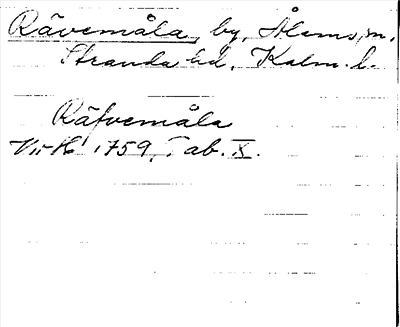 Rävemåla, by, Ålems sn,
Stranda hd, Kalm. l.
Räfvemåla
1759, Tab. X.